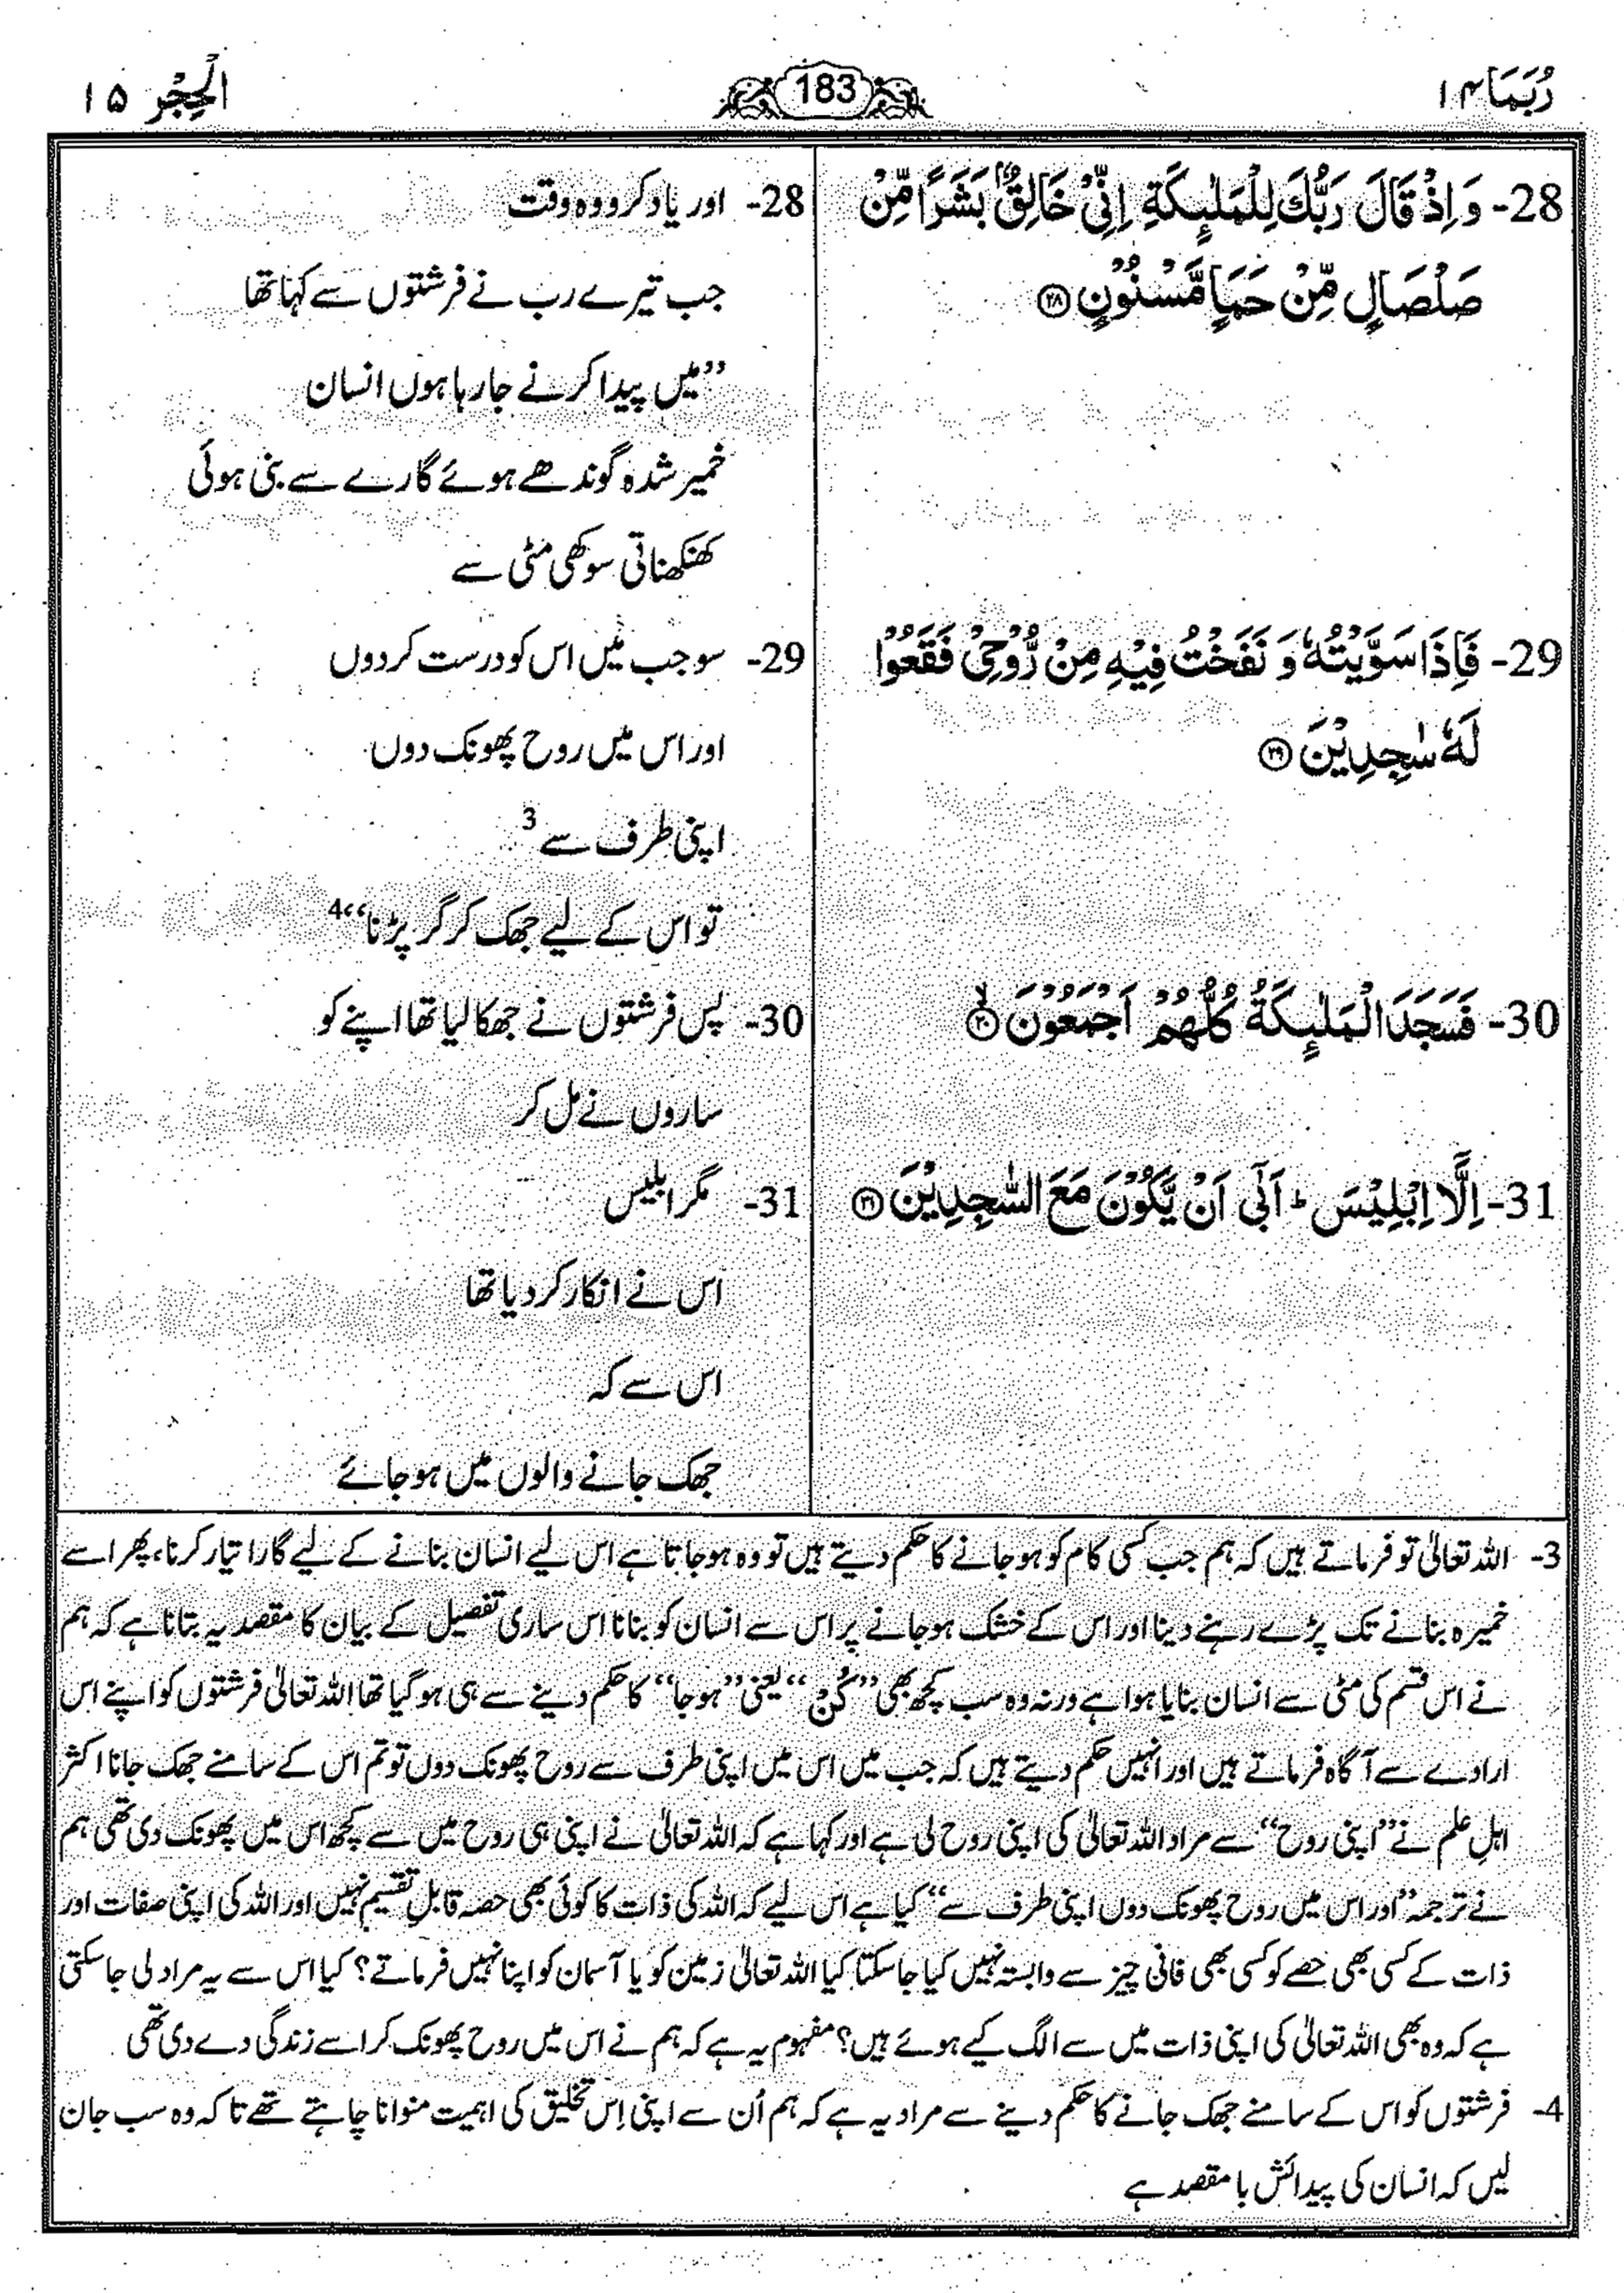 رُبَمَا ۱۴
183
الْحِجْر ۱۵
28- وَ اِذْ قَالَ رَبُّكَ لِلْمَلٰٓىِٕكَةِ اِنِّیْ خَالِقٌۢ بَشَرًا مِّنْ
صَلْصَالٍ مِّنْ حَمَاٍ مَّسْنُوْنٍ ۲۸
29- فَاِذَا سَوَّیْتُهٗ وَ نَفَخْتُ فِیْهِ مِنْ رُّوْحِیْ فَقَعُوْا
لَهٗ سٰجِدِیْنَ ۲۹
30- فَسَجَدَ الْمَلٰٓىِٕكَةُ كُلُّهُمْ اَجْمَعُوْنَۙ ۳۰
31- اِلَّاۤ اِبْلِیْسَ ؕ اَبٰۤی اَنْ یَّكُوْنَ مَعَ السّٰجِدِیْنَ ۳۱
28- اور یاد کرو وہ وقت
جب تیرے رب نے فرشتوں سے کہا تھا
”میں پیدا کرنے جا رہا ہوں انسان
خمیر شدہ گوندھے ہوئے گارے سے بنی ہوئی
کھنکھناتی سوکھی مٹی سے
29- سو جب میں اس کو درست کردوں
اور اس میں روح پھونک دوں
اپنی طرف سے 3
تو اس کے لیے جھک کر گر پڑنا“ 4
30- پس فرشتوں نے جھکا لیا تھا اپنے کو
ساروں نے مل کر
31- مگر ابلیس
اس نے انکار کر دیا تھا
اس سے کہ
جھک جانے والوں میں ہو جائے
3- اللہ تعالیٰ تو فرماتے ہیں کہ ہم جب کسی کام کو ہو جانے کا حکم دیتے ہیں تو وہ ہو جاتا ہے اس لیے انسان بنانے کے لیے گارا تیار کرنا، پھر اسے
خمیرہ بنانے تک پڑے رہنے دینا اور اس کے خشک ہو جانے پر اس سے انسان کو بنانا اس ساری تفصیل کے بیان کا مقصد یہ بتانا ہے کہ ہم
نے اس قسم کی مٹی سے انسان بنایا ہوا ہے ورنہ وہ سب کچھ بھی ”کُنْ“ یعنی ”ہو جا“ کا حکم دینے سے ہی ہو گیا تھا اللہ تعالیٰ فرشتوں کو اپنے اس
ارادے سے آگاہ فرماتے ہیں اور انہیں حکم دیتے ہیں کہ جب میں اس میں اپنی طرف سے روح پھونک دوں تو تم اس کے سامنے جھک جانا اکثر
اہلِ علم نے ”اپنی روح“ سے مراد اللہ تعالیٰ کی اپنی روح لی ہے اور کہا ہے کہ اللہ تعالیٰ نے اپنی ہی روح میں سے کچھ اس میں پھونک دی تھی ہم
نے ترجمہ ”اور اس میں روح پھونک دوں اپنی طرف سے“ کیا ہے اس لیے کہ اللہ کی ذات کا کوئی بھی حصہ قابلِ تقسیم نہیں اور اللہ کی اپنی صفات اور
ذات کے کسی بھی حصے کو کسی بھی فانی چیز سے وابستہ نہیں کیا جا سکتا کیا اللہ تعالیٰ زمین کو یا آسمان کو اپنا نہیں فرماتے؟ کیا اس سے یہ مراد لی جا سکتی
ہے کہ وہ بھی اللہ تعالیٰ کی اپنی ذات میں سے الگ کیے ہوئے ہیں؟ مفہوم یہ ہے کہ ہم نے اس میں روح پھونک کر اسے زندگی دے دی تھی
4- فرشتوں کو اس کے سامنے جھک جانے کا حکم دینے سے مراد یہ ہے کہ ہم اُن سے اپنی اِس تخلیق کی اہمیت منوانا چاہتے تھے تا کہ وہ سب جان
لیں کہ انسان کی پیدائش با مقصد ہے